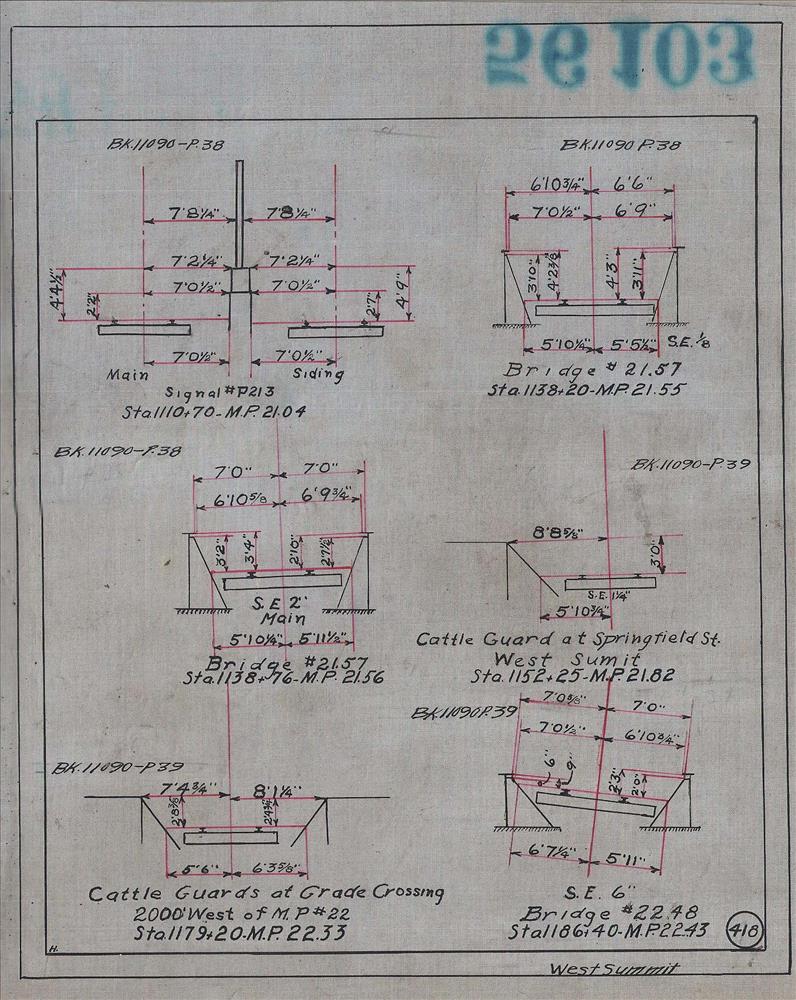 56103
BK.11090-P.38
7'8¼" 7'8¼"
7'2¼" 7'2¼"
7'0½" 7'0½"
4'4½" 2'2" 2'7" 4'9"
7'0½" 7'0½"
Main Siding
Signal #P213
Sta.1110+70-M.P. 21.04
BK.11090 P.38
6'10¾" 6'6"
7'0½" 6'9"
3'10" 4'2⅜" 4'3" 3'11"
5'10¼" 5'5½" S.E. ⅛
Bridge # 21.57
Sta.1138+20-M.P. 21.55
BK.11090-P.38
7'0" 7'0"
6'10⅝ 6'9¾"
3'2" 3'4" 2'10" 2'7½"
S.E 2"
Main
5'10¼" 5'11½"
Bridge #21.57
Sta.1138+76-M.P. 21.56
BK.11090-P.39
8'8⅝"
3'0"
S.E. 1¼"
5'10¾"
Cattle Guard at Springfield St.
West Sumit
Sta.1152+25-M.P. 21.82
BK.11090-P39
7'4¾" 8'1¼"
2'8⅜ 2'4¾"
5'6" 6'3⅝"
Cattle Guards at Grade Crossing
2000' West of M.P #22
Sta.1179+20-M.P. 22.33
BK.11090 P.39
7'0⅝" 7'0"
7'0½" 6'10¾"
6" 9" 2'3" 2'0"
6'7¼" 5'11"
S.E. 6"
Bridge #22.48
Sta.1186+40-M.P.22.43
418
H.
West Summit